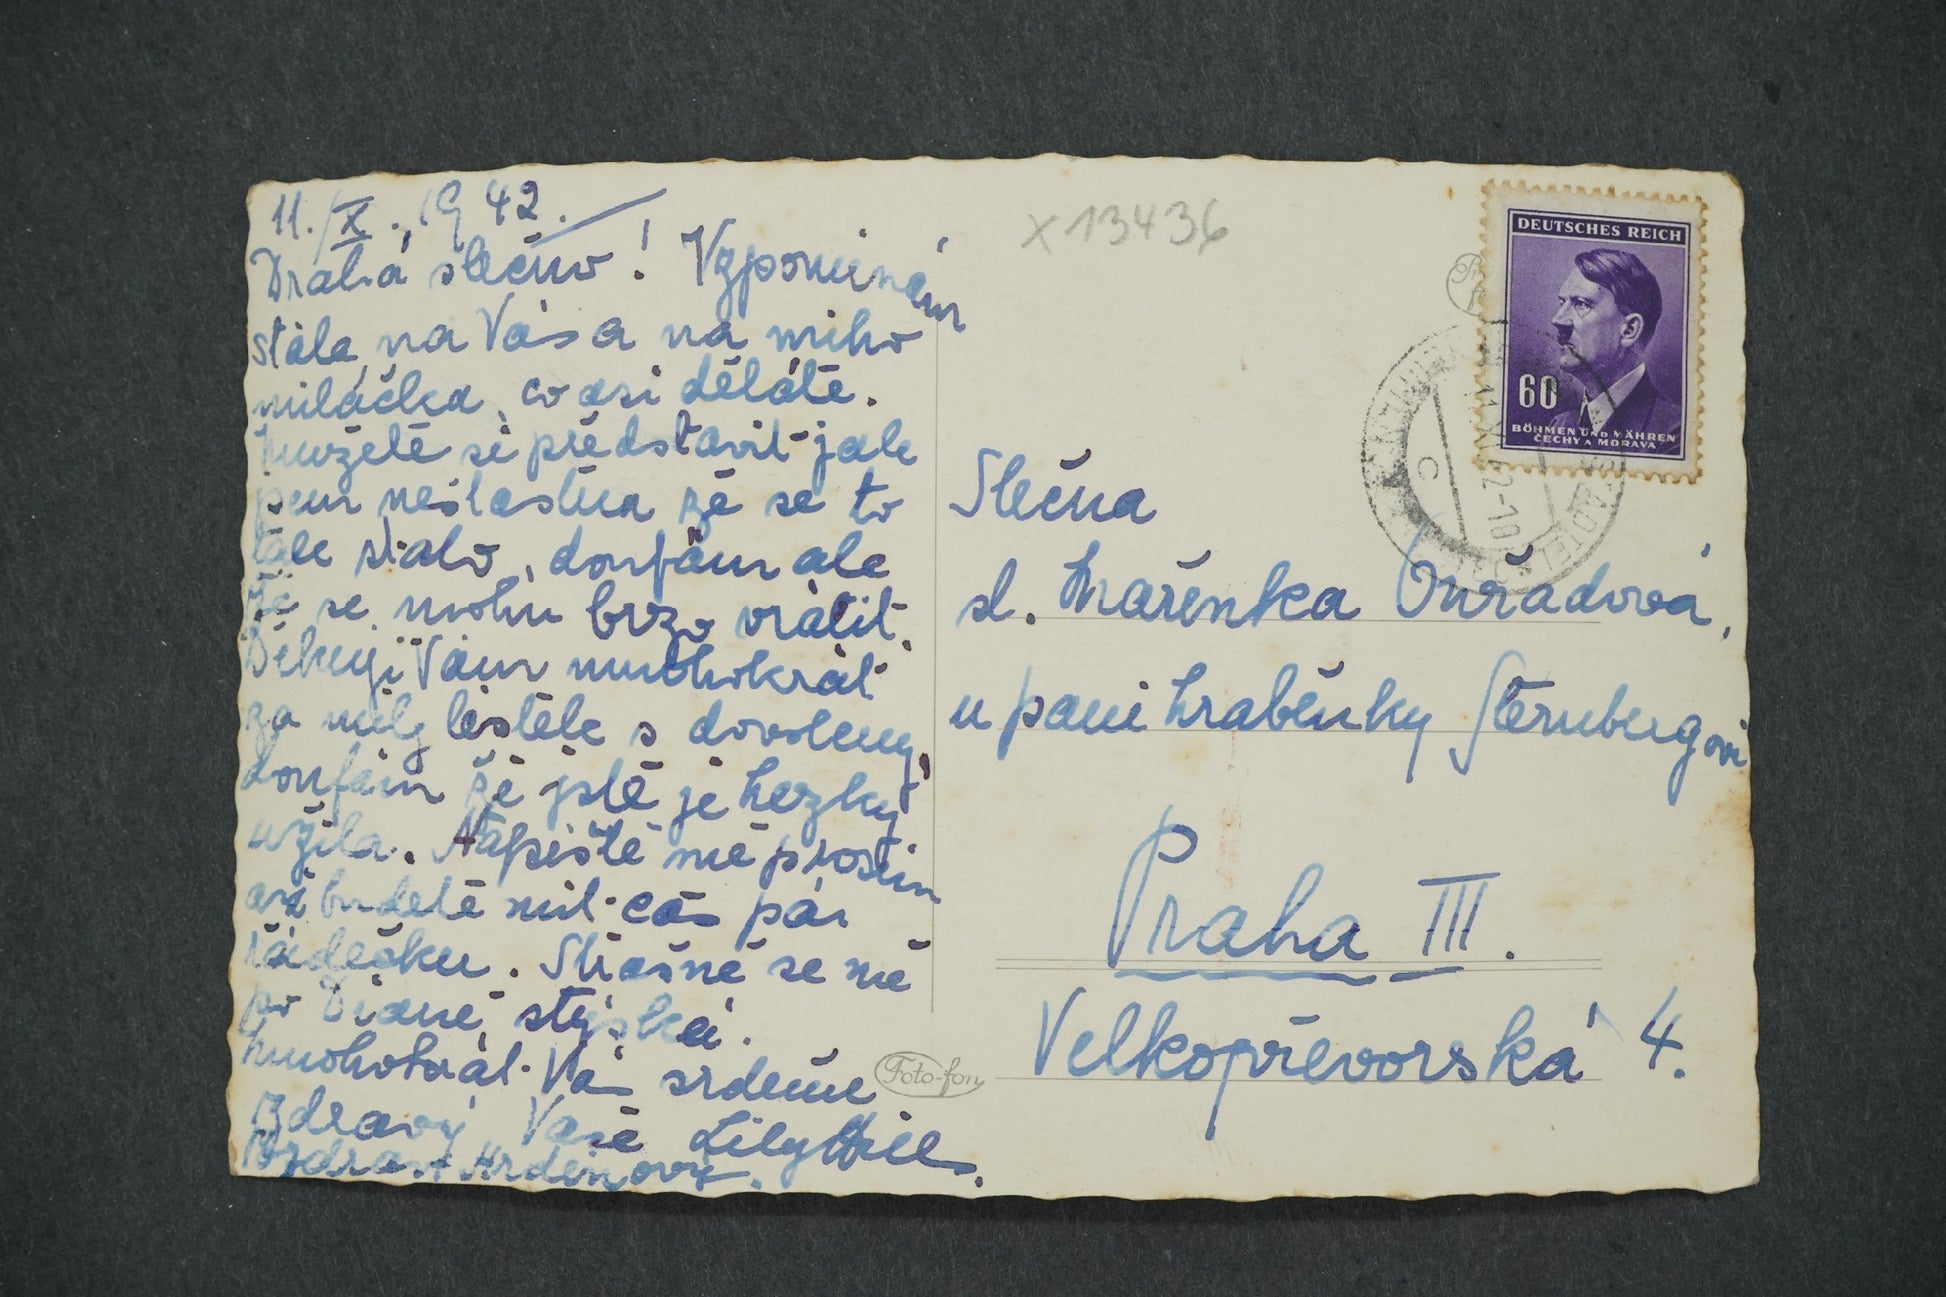 11./X., 1942.
Drahá slečno! Vzpomínám
stále na Vás a na mího
miláčka, co asi děláte.
Mužete si představit jak
jsem neštastna že se to
tak stalo, doufám ale
že se mohu brzo vrátit.
Děkuji Vám mnohokrát
za milý lístek s dovoleny,
doufám že jste je hezky
užila. Napište mě prosím
až budete mít čas pár
řádečku. Strašně se mě
po Dianě stýská.
Mnohokrát Vás srdečne
zdraví Vaše Lily
Pozdrav
x 13436
DEUTSCHES REICH
60
BÖHMEN UND MÄHREN
ČECHY A MORAVA
C
Slečna
sl. Mařenka Ouřadová,
u paní hraběnky Šternbergovi
Praha III.
Velkopřevorská 4.
Foto-fon